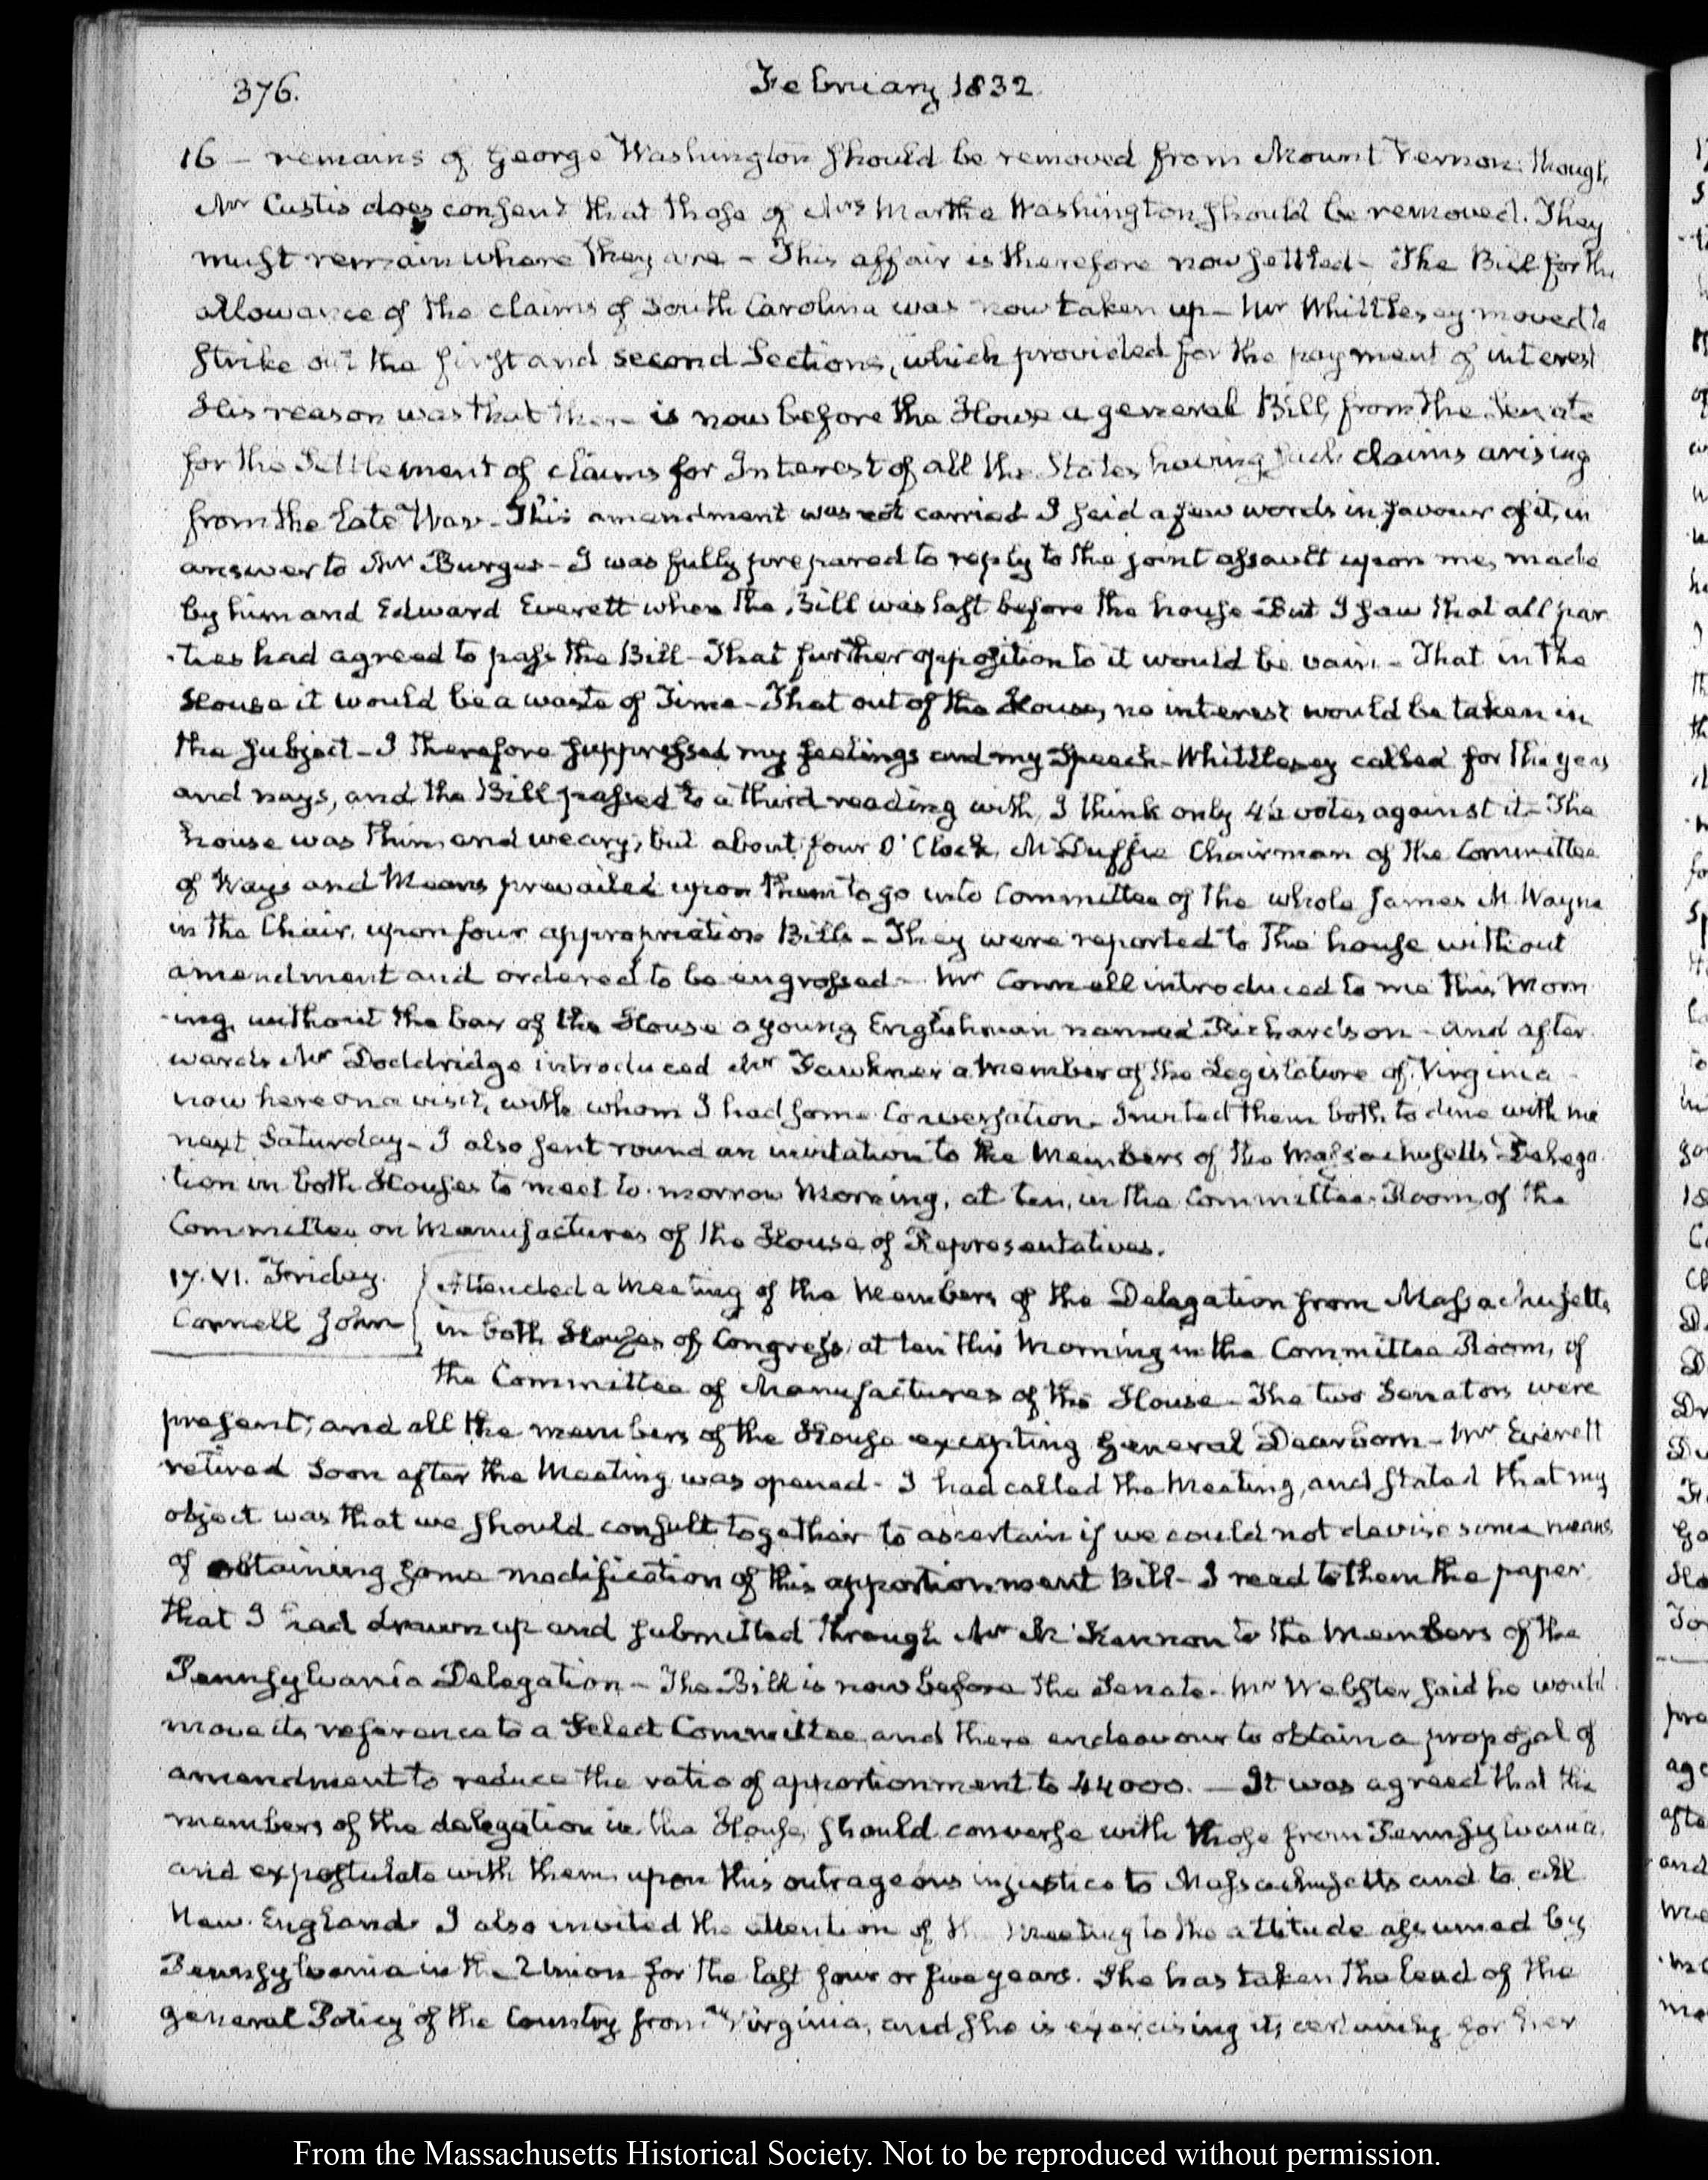 376.
February 1832
16 – remains of George Washington should be removed from Mount Vernon: though
Mr Custis does consent that those of Mrs Martha Washington should be removed. They
must remain where they are – This affair is therefore now settled – The Bill for the
allowance of the claims of South Carolina was now taken up – Mr Whittlesey moved to
strike out the first and second Sections, which provided for the payment of interest
His reason was that there is now before the House a general Bill, from the Senate
for the Settlement of claims for Interest of all the States having such claims arising
from the late War – This amendment was not carried I said a few words in favour of it, in
answer to Mr Burges – I was fully prepared to reply to the joint assault upon me, made
by him and Edward Everett when the Bill was last before the house – But I saw that all par
-ties had agreed to pass the Bill – That further opposition to it would be vain – That in the
House it would be a waste of Time – That out of the House, no interest would be taken in
the subject – I therefore suppressed my feelings and my Speech – Whittlesey called for the yeas
and nays, and the Bill passed to a third reading with, I think only votes against it – The
house was thin, and weary; but about four O'Clock, McDuffie Chairman of the Committee
of Ways and Means prevailed upon them to go into Committee of the whole James M. Wayne
in the Chair, upon four appropriation Bills – They were reported to the house without
amendment and ordered to be engrossed – Mr Connell introduced to me this Morn
-ing, without the bar of the House a young Englishman named Richardson – and after
wards Mr Doddridge introduced Mr Fawkner a Member of the Legislature of Virginia –
now here on a visit, with whom I had some Conversation. Invited them both to dine with me
next Saturday – I also sent round an invitation to the Members of the Massachusetts Delega
-tion in both Houses to meet to-morrow Morning, at ten, in the Committee Room, of the
Committee on Manufactures of the House of Representatives.
17. VI. Friday.
Connell John
Attended a Meeting of the Members of the Delegation from Massachusetts
in both Houses of Congress, at ten this Morning in the Committee Room, of
the Committee of Manufactures of the House – The two Senators were
present, and all the members of the House excepting General Dearborn – Mr Everett
retired soon after the Meeting was opened – I had called the Meeting, and stated that my
object was that we should consult together to ascertain if we could not devise some means
of obtaining some modification of this apportionment Bill – I read to them the paper
that I had drawn up and submitted through Mr McKennan to the Members of the
Pennsylvania Delegation – The Bill is now before the Senate – Mr Webster said he would
move its reference to a Select Committee, and there endeavour to obtain a proposal of
amendment to reduce the ratio of apportionment to 44000. – It was agreed that the
members of the delegation in the House, should converse with those from Pennsylvania,
and expostulate with them upon this outrageous injustice to Massachusetts and to all
New-England. I also invited the attention of the Meeting to the attitude assumed by
Pennsylvania in the Union for the last four or five years. She has taken the lead of the
general Policy of the Country from Virginia, and she is exercising its for her
From the Massachusetts Historical Society. Not to be reproduced without permission.